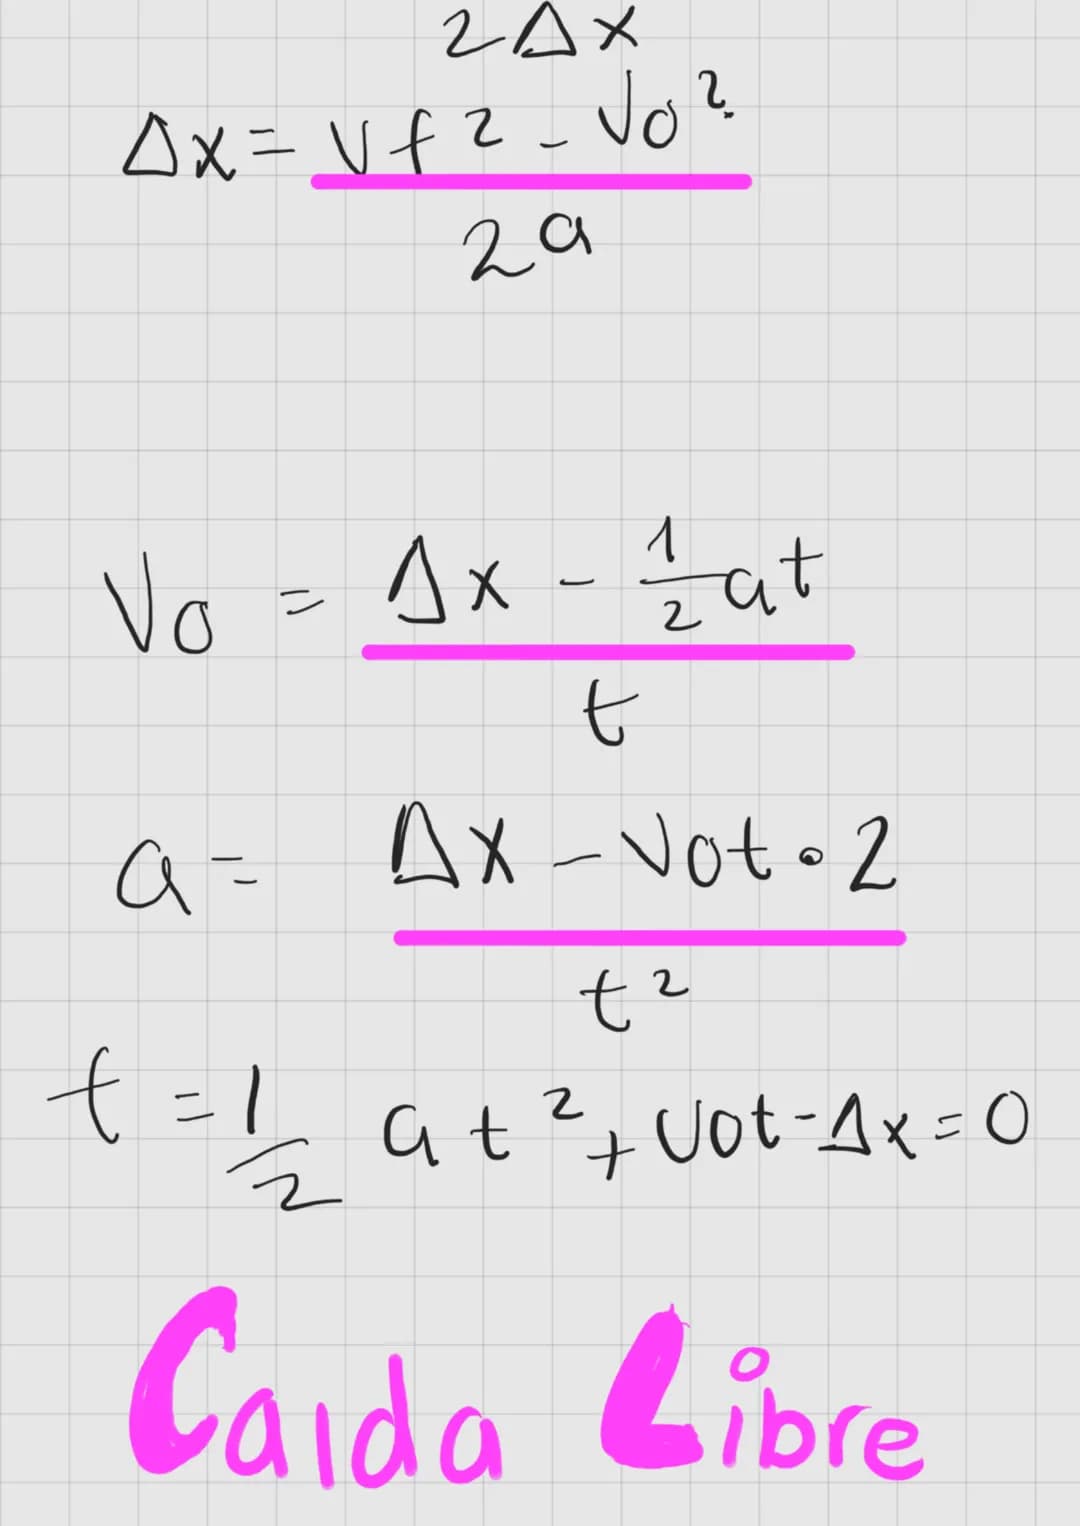 2Δx
Δx = Vf² - Vo²
2a
Vo = Δx - 1/2 at
t
a = Δx - Vot • 2
t²
t = 1/2 at² + Vot - Δx = 0
Caida Libre